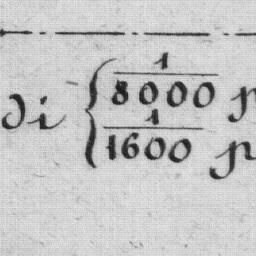 di { 1/8000 p
1/1600 p